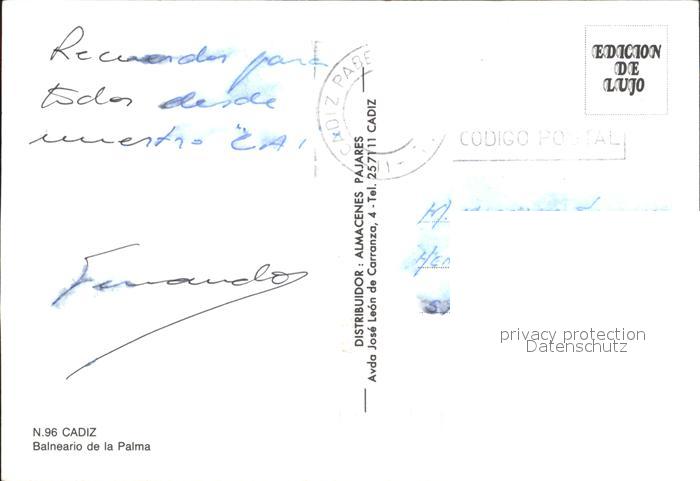 Recuerdos para
todos desde
nuestro
Fernando
N.96 CADIZ
Balneario de la Palma
DISTRIBUIDOR : ALMACENES PAJARES
Avda José León de Carranza, 4 -Tel. 257111 CADIZ
CADIZ
EDICION
DE
LUJO
CODIGO POSTAL
privacy protection
Datenschutz